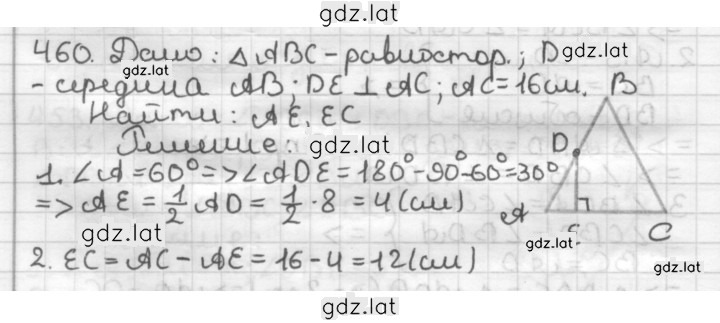 gdz.lat
460. Дано: △ABC - равностор.; D
gdz.lat
gdz.lat
- середина AB; DE ⊥ AC; AC = 16 см.
B
Найти: AE, EC
Решение:
gdz.lat
D
1. ∠A = 60° => ∠ADE = 180° - 90° - 60° = 30°
=> AE = 1/2 AD = 1/2 · 8 = 4 (см)
A
C
gdz.lat
gdz.lat
2. EC = AC - AE = 16 - 4 = 12 (см)
gdz.lat
gdz.lat